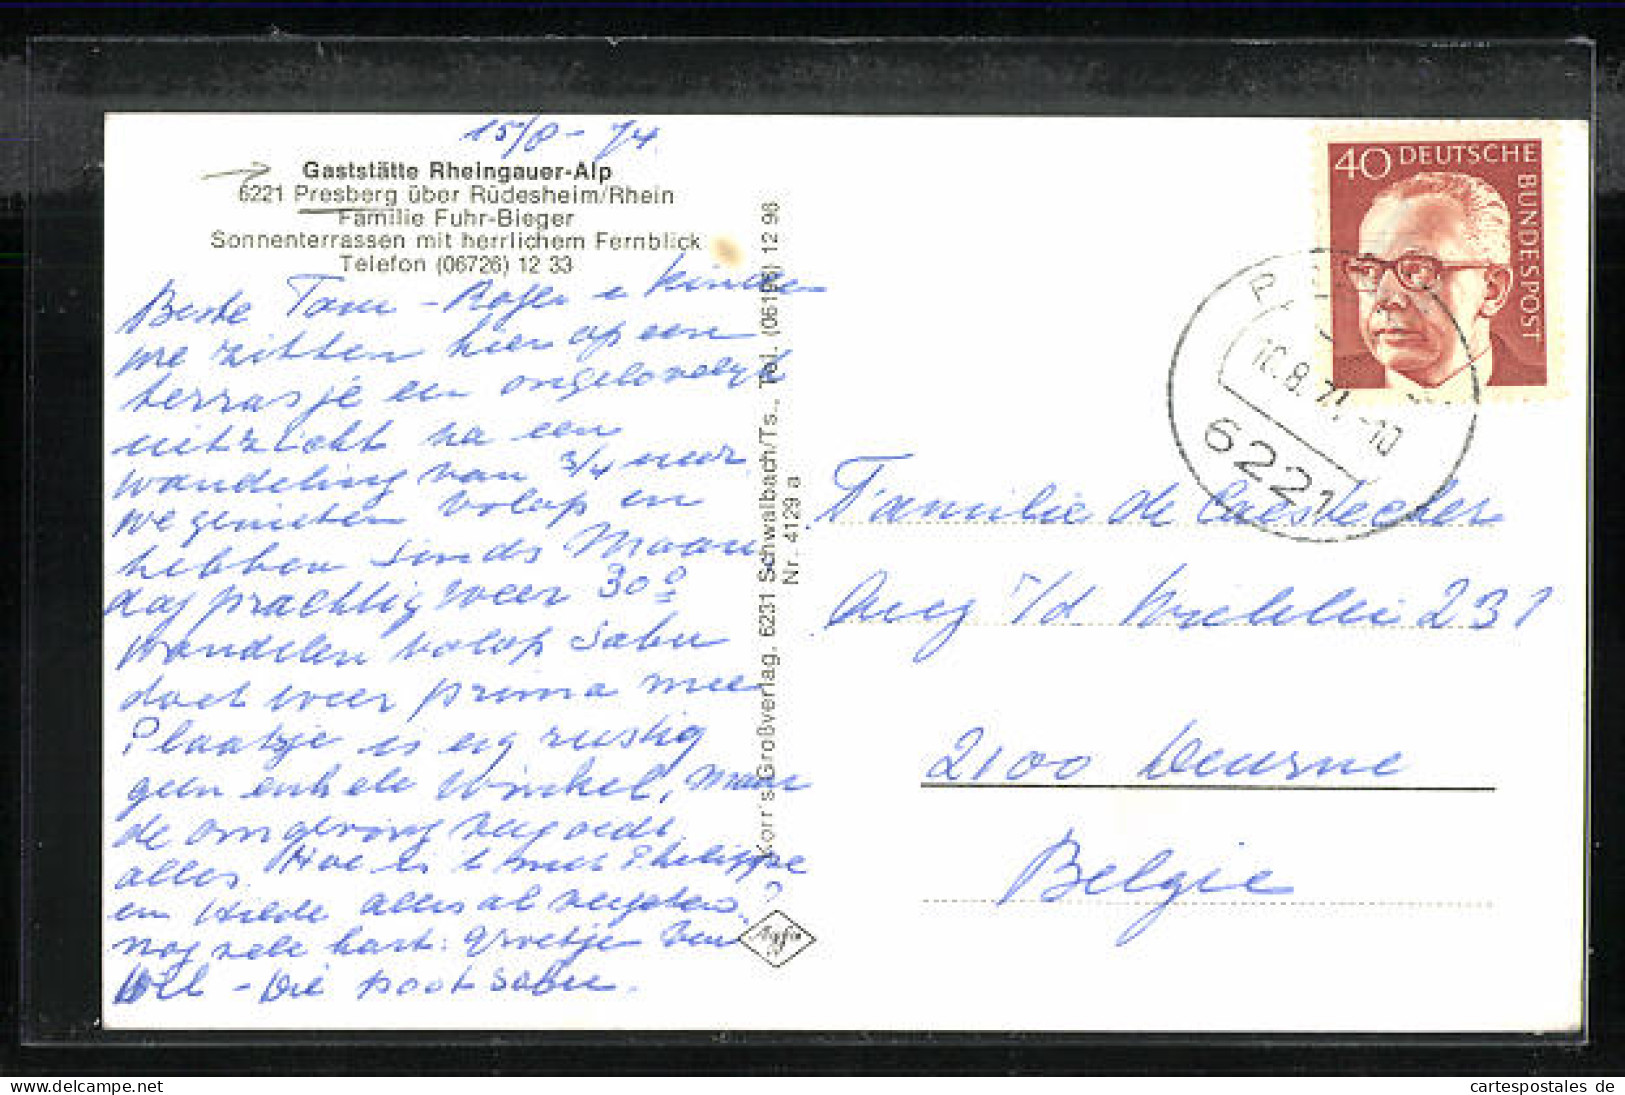 15/8 - 74
Gaststätte Rheingauer-Alp
6221 Presberg über Rüdesheim/Rhein
Familie Fuhr-Bieger
Sonnenterrassen mit herrlichem Fernblick
Telefon (06726) 12 33
Beste Tom - Roger kinderen
we zitten hier op een
terrasje een ongelovelijk
uitzicht na een
wandeling van 3/4 uur
we genieten volop en
hebben sinds Maan
dag prachtig weer 30°
Wandelen volop Sabu
doet weer prima mee
Plaatje is erg rustig
geen enkele winkel, maar
de omgeving vergoedt
alles. Hoe is 't met Philippe
en Hilde alles al vergeten ?
nog vele hart. groetjes van
Wil - Vic poot Sabu.
Korr's Großverlag, 6231 Schwalbach/Ts., Tel. (06196) 12 98
Nr. 4129 a
Agfa
40 DEUTSCHE
BUNDESPOST
6221
Familie de
231
2100 Deurne
Belgie
cartespostales de